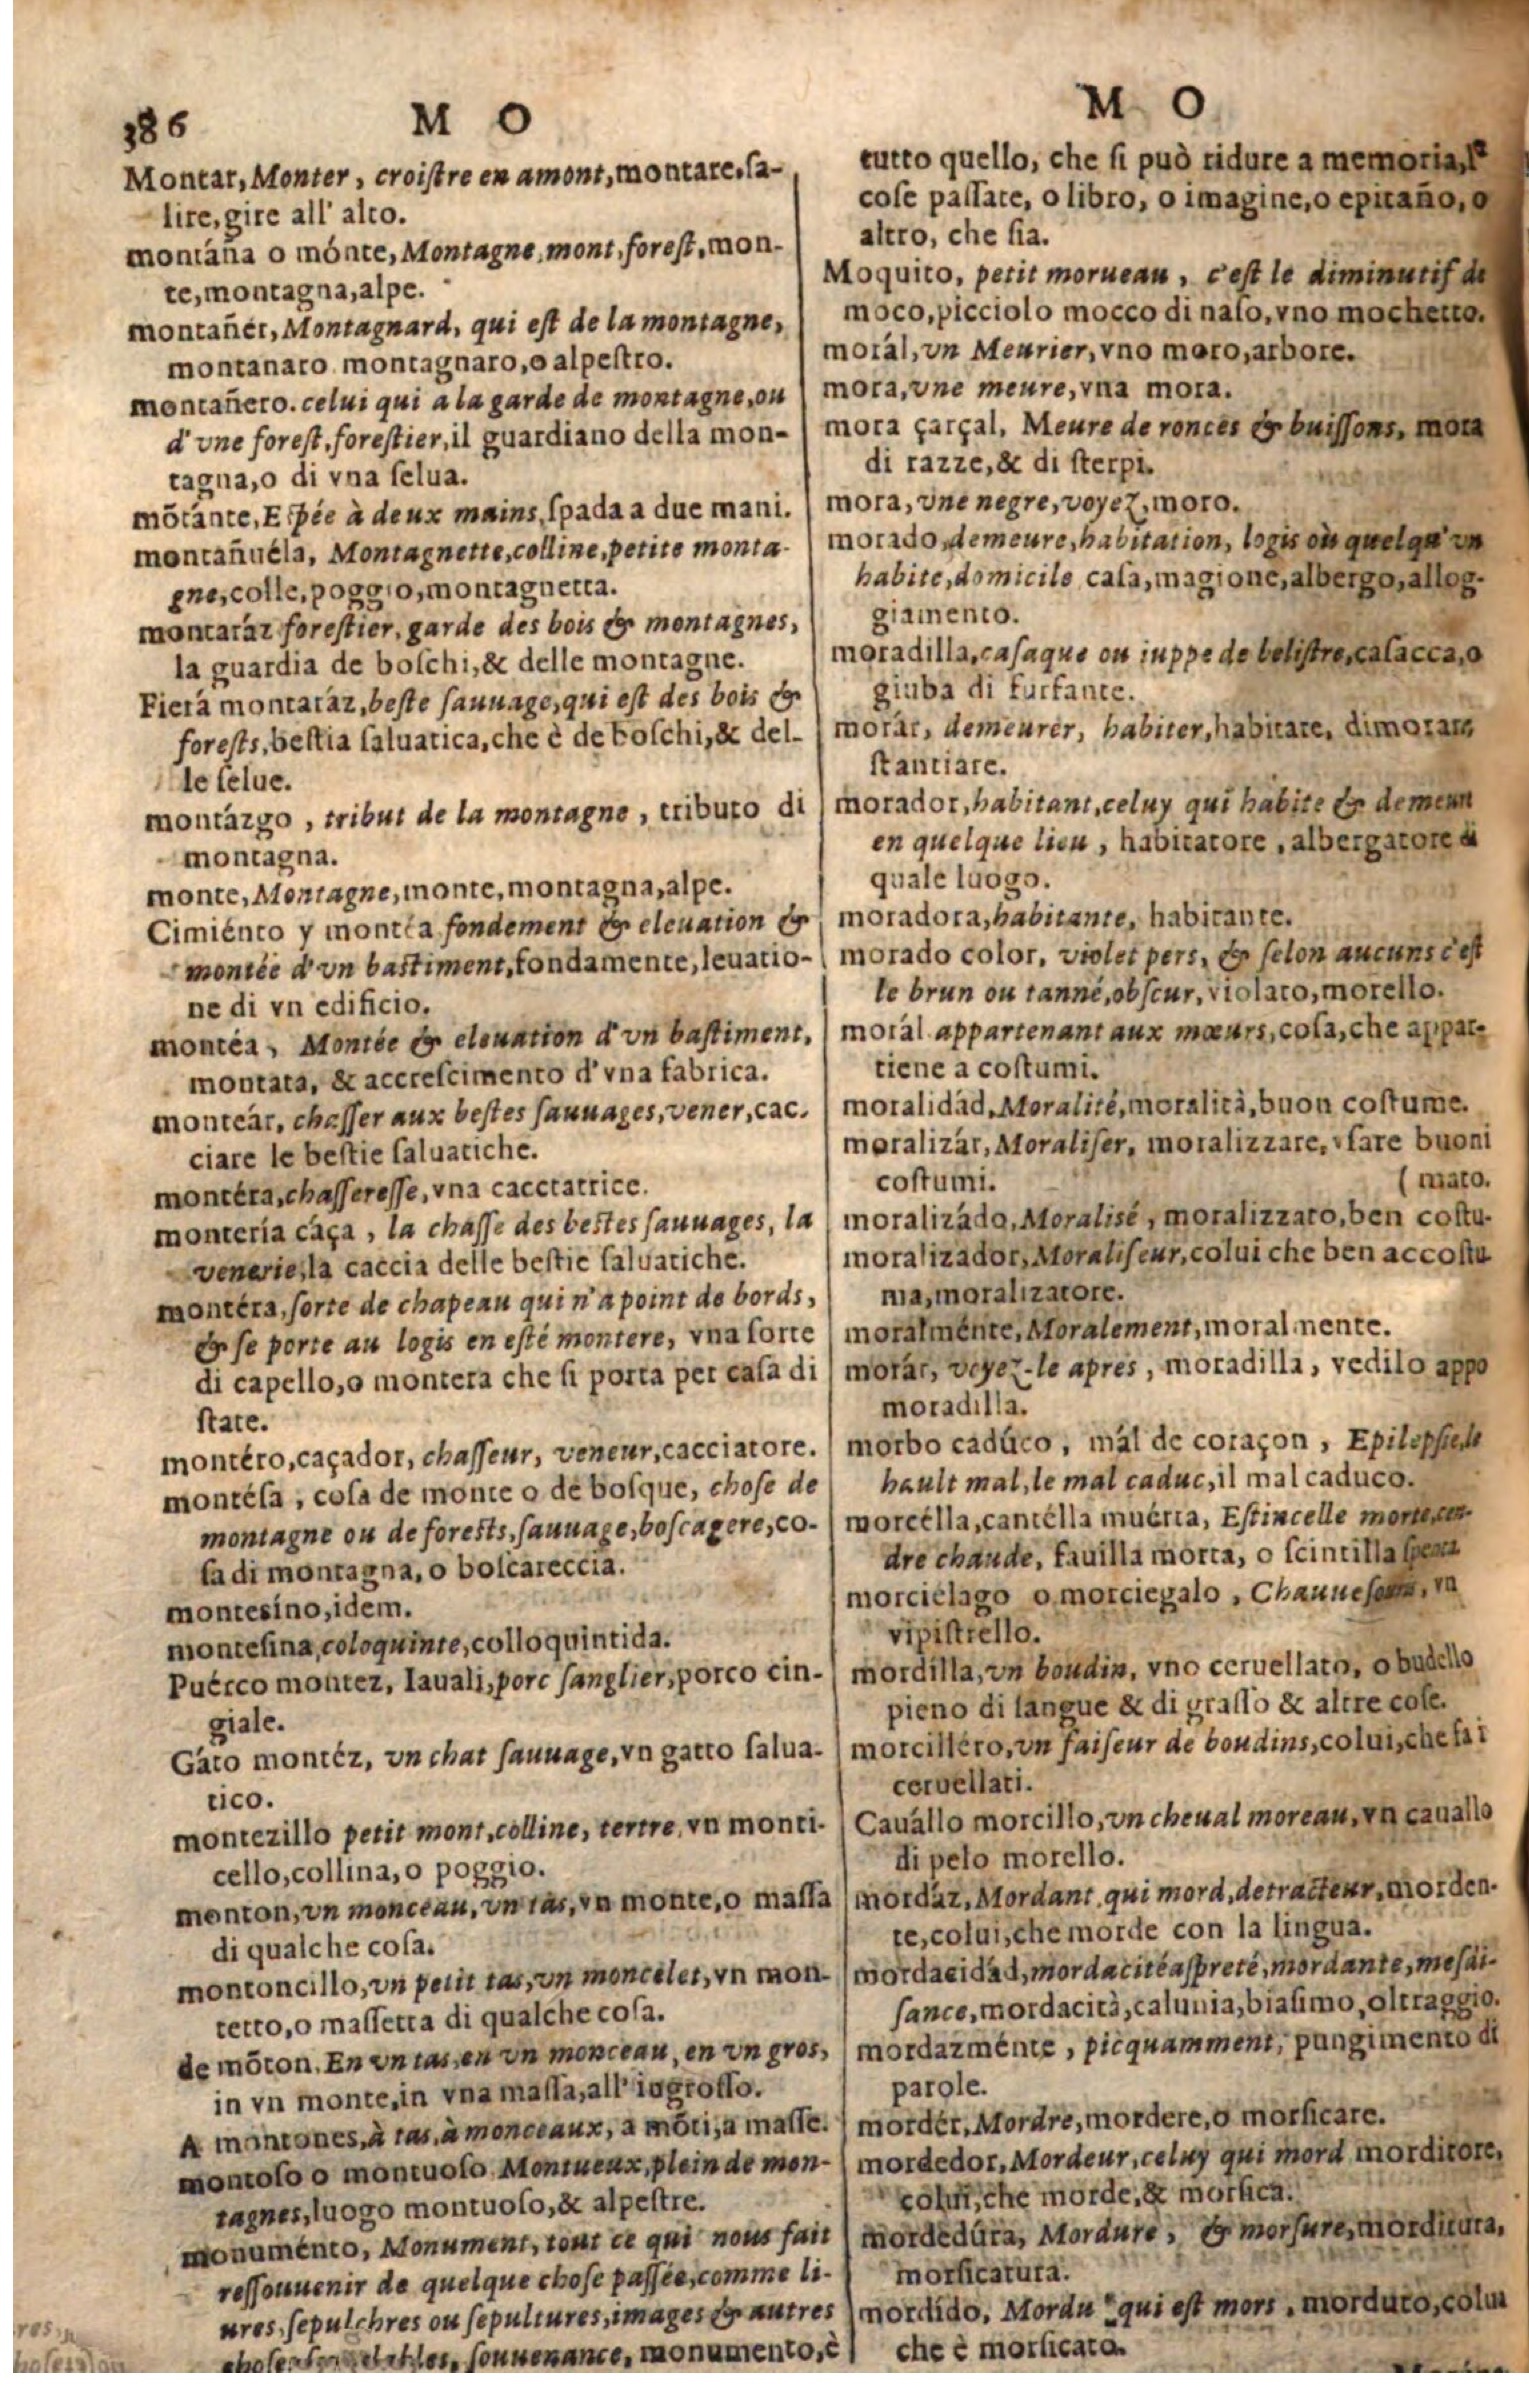 386 M O
Montar, Monter, croiſtre en amont, montare, ſa-
lire, gire all' alto.
montáña o mónte, Montagne, mont, foreſt, mon-
te, montagna, alpe.
montañér, Montagnard, qui eſt de la montagne,
montanaro montagnaro, o alpeſtro.
montañero. celui qui a la garde de montagne, ou
d'vne foreſt, foreſtier, il guardiano della mon-
tagna, o di vna ſelua.
mōtánte, Eſpée à deux mains, ſpada a due mani.
montañuéla, Montagnette, colline, petite monta-
gne, colle, poggio, montagnetta.
montaráz foreſtier, garde des bois & montagnes,
la guardia de boſchi, & delle montagne.
Fierá montaráz, beſte ſauuage, qui eſt des bois &
foreſts, beſtia ſaluatica, che è de boſchi, & del-
le ſelue.
montázgo, tribut de la montagne, tributo di
montagna.
monte, Montagne, monte, montagna, alpe.
Cimiénto y montéa fondement & eleuation &
montée d'vn baſtiment, fondamente, leuatio-
ne di vn edificio.
montéa, Montée & eleuation d'vn baſtiment,
montata, & accreſcimento d'vna fabrica.
monteár, chaſſer aux beſtes ſauuages, vener, cac-
ciare le beſtie ſaluatiche.
montéra, chaſſereſſe, vna cacctatrice.
montería cáça, la chaſſe des beſtes ſauuages, la
venerie, la caccia delle beſtie ſaluatiche.
montéra, ſorte de chapeau qui n'a point de bords,
& ſe porte au logis en eſté montere, vna ſorte
di capello, o montera che ſi porta per caſa di
ſtate.
montéro, caçador, chaſſeur, veneur, cacciatore.
montéſa, coſa de monte o de boſque, choſe de
montagne ou de foreſts, ſauuage, boſcagere, co-
ſa di montagna, o boſcareccia.
montesíno, idem.
monteſina, coloquinte, colloquintida.
Puérco montez, Iauali, porc ſanglier, porco cin-
giale.
Gáto montéz, vn chat ſauuage, vn gatto ſalua-
tico.
montezillo petit mont, colline, tertre, vn monti-
cello, collina, o poggio.
monton, vn monceau, vn tas, vn monte, o maſſa
di qualche coſa.
montoncillo, vn petit tas, vn moncelet, vn mon-
tetto, o maſſetta di qualche coſa.
de mōton. En vn tas, en vn monceau, en vn gros,
in vn monte, in vna maſſa, all' ingroſſo.
A montones, à tas, à monceaux, a mōti, a maſſe.
montoſo o montuoſo Montueux, plein de mon-
tagnes, luogo montuoſo, & alpeſtre.
monuménto, Monument, tout ce qui nous fait
reſſouuenir de quelque choſe paſſée, comme li-
ures, ſepulchres ou ſepultures, images & autres
ſouuenance, monumento, è
M O
tutto quello, che ſi può ridure a memoria,
coſe paſſate, o libro, o imagine, o epitaño, o
altro, che ſia.
Moquito, petit morueau, c'eſt le diminutif de
moco, picciolo mocco di naſo, vno mochetto.
morál, vn Meurier, vno moro, arbore.
mora, vne meure, vna mora.
mora çarçal, Meure de ronces & buiſſons, mora
di razze, & di ſterpi.
mora, vne negre, voyez, moro.
morado, demeure, habitation, logis où quelqu'vn
habite, domicile caſa, magione, albergo, allog-
giamento.
moradilla, caſaque ou iuppe de beliſtre, caſacca, o
giuba di furfante.
morár, demeurer, habiter, habitare, dimorare,
ſtantiare.
morador, habitant, celuy qui habite & demeure
en quelque lieu, habitatore, albergatore di
quale luogo.
moradora, habitante, habitante.
morado color, violet pers, & ſelon aucuns c'eſt
le brun ou tanné, obſcur, violato, morello.
morál appartenant aux mœurs, coſa, che appar-
tiene a coſtumi.
moralidád, Moralité, moralità, buon coſtume.
moralizár, Moraliſer, moralizzare, vſare buoni
coſtumi. (mato.
moralizádo, Moraliſé, moralizzato, ben coſtu-
moralizador, Moraliſeur, colui che ben accoſtu-
ma, moralizatore.
moralménte, Moralement, moralmente.
morár, voyez-le apres, moradilla, vedilo appo
moradilla.
morbo cadúco, mál de coraçon, Epilepſie, le
hault mal, le mal caduc, il mal caduco.
morcélla, cantélla muérta, Eſtincelle morte, cen-
dre chaude, fauilla morta, o ſcintilla ſpenta
morciélago o morciegalo, Chauueſouris, vn
vipiſtrello.
mordilla, vn boudin, vno ceruellato, o budello
pieno di ſangue & di graſſo & altre coſe.
morcilléro, vn faiſeur de boudins, colui, che fa i
ceruellati.
Cauállo morcillo, vn cheual moreau, vn cauallo
di pelo morello.
mordáz, Mordant, qui mord, detracteur, morden-
te, colui, che morde con la lingua.
mordacidád, mordacité aſpreté, mordante, meſdi-
ſance, mordacità, calunia, biaſimo, oltraggio.
mordazménte, picquamment, pungimento di
parole.
mordér, Mordre, mordere, o morſicare.
mordedor, Mordeur, celuy qui mord morditore,
colui, che morde, & morſica.
mordedúra, Mordure, & morſure, morditura,
morſicatura.
mordído, Mordu qui eſt mors, morduto, colui
che è morſicato.